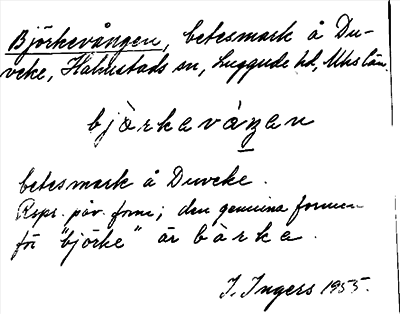 Björkevången, betesmark å Du-
veke, Halmstads sn, Luggude hd, Mhs län.
bjòrkavánan
betesmark å Duveke.
Rspr. påv. form; den genuina formen
för "björke" är bàrka.
I. Ingers 1955.